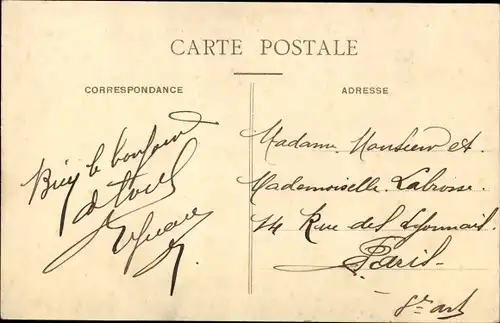 CARTE POSTALE
CORRESPONDANCE
ADRESSE
Bien le bonjour
à tous
Madame Monsieur et
Mademoiselle Labrosse
14 Rue des Lyonnais
Paris
5e art